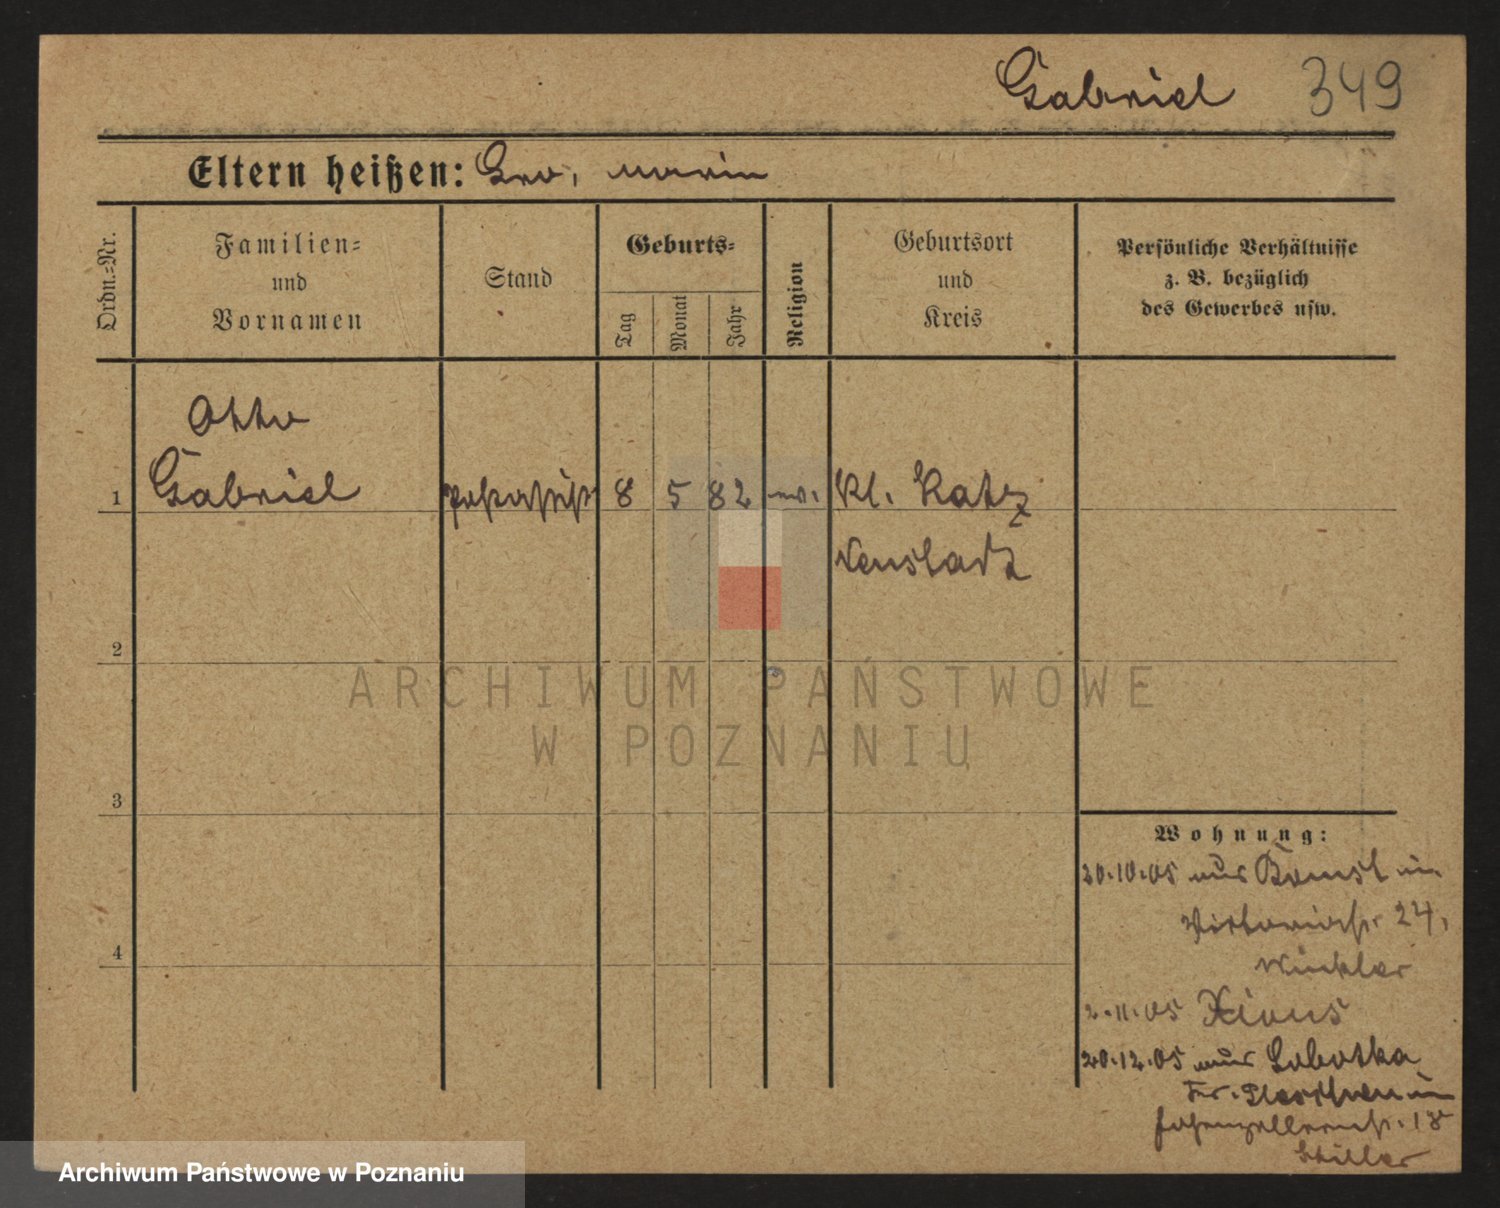 Gabriel 349
Eltern heißen:
Ordn.=Nr.
Familien=
und
Vornamen
Stand
Geburts=
Tag
Monat
Jahr
Religion
Geburtsort
und
Kreis
Persönliche Verhältnisse
z. B. bezüglich
des Gewerbes usw.
Otto
1 Gabriel 8 5 82 ev. Kl. Katz
Neustadt
2
ARCHIWUM PAŃSTWOWE
W POZNANIU
3
Wohnung:
20.10.05 aus Bomst in
Viktoriastr. 24,
Winkler
4
2.11.05 Xions
20.12.05 aus Lobotka
in
Hohenzollernstr. 18
Stiller
Archiwum Państwowe w Poznaniu